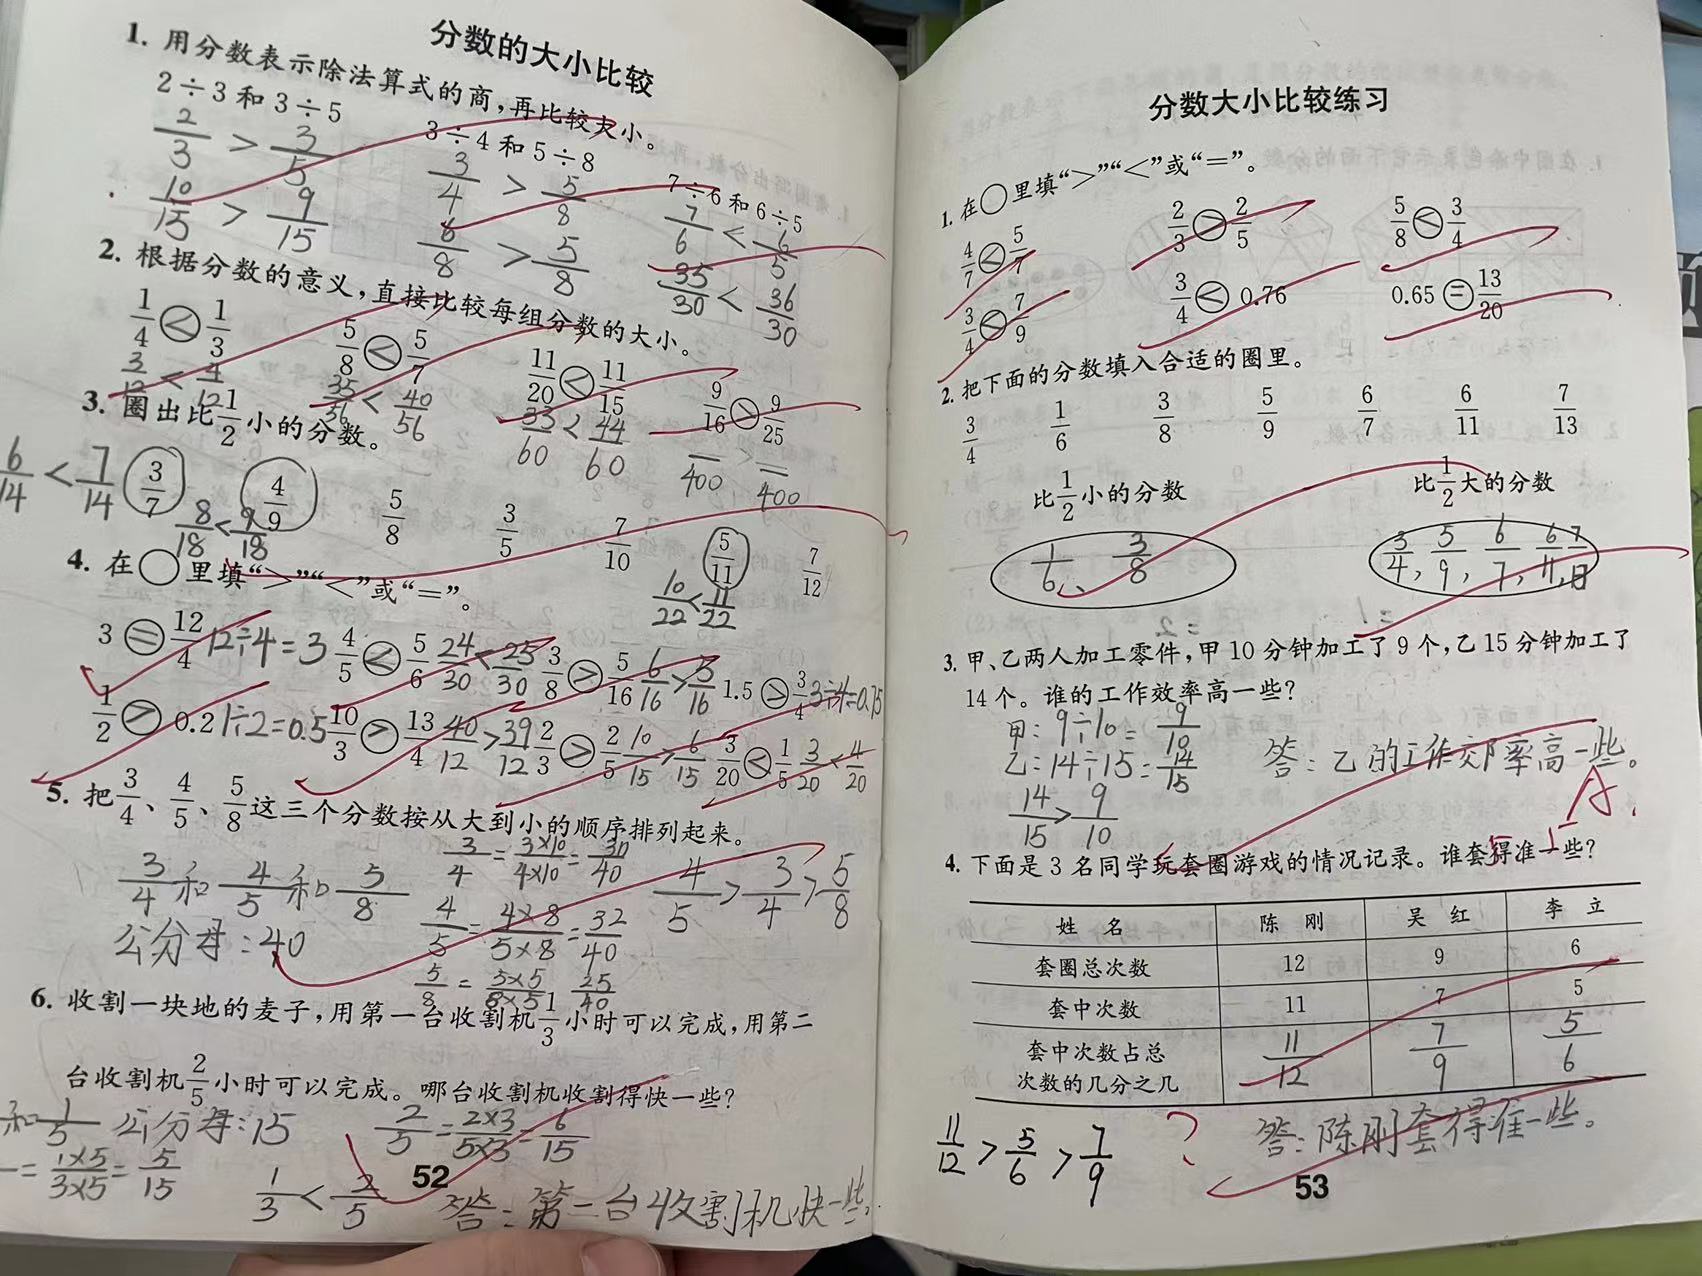 分数的大小比较
1. 用分数表示除法算式的商,再比较大小。
2÷3和3÷5 3÷4和5÷8 7÷6和6÷5
2/3 > 3/5 3/4 > 5/8 7/6 < 6/5
10/15 > 9/15 6/8 > 5/8 35/30 < 36/30
2. 根据分数的意义,直接比较每组分数的大小。
1/4 < 1/3 5/8 < 5/7 11/20 < 11/15 9/16 > 9/25
3/12 < 4/12 35/36 < 40/56 33/60 < 44/60 —/400 > —/400
3. 圈出比1/2小的分数。
6/14 < 7/14 3/7 8/18 < 9/18 4/9 5/8 3/5 7/10 5/11 7/12
10/22 < 11/22
4. 在○里填“>”“<”或“=”。
3 = 12/4 12÷4=3 4/5 < 5/6 24/30 < 25/30 3/8 > 5/16 6/16 > 5/16 1.5 > 3/4 3÷4=0.75
1/2 > 0.2 1÷2=0.5 10/3 > 13/4 40/12 > 39/12 2/3 > 2/5 10/15 > 6/15 3/20 < 1/5 3/20 < 4/20
5. 把3/4、4/5、5/8这三个分数按从大到小的顺序排列起来。
3/4和4/5和5/8 3/4 = 3×10/4×10 = 30/40 4/5 > 3/4 > 5/8
公分母:40 4/5 = 4×8/5×8 = 32/40
5/8 = 5×5/8×5 25/40
6. 收割一块地的麦子,用第一台收割机1/3小时可以完成,用第二
台收割机2/5小时可以完成。哪台收割机收割得快一些?
和1/5 公分母:15 2/5 = 2×3/5×3 = 6/15
= 1×5/3×5 = 5/15 1/3 < 2/5 答:第一台收割机快一些。
52
分数大小比较练习
1. 在○里填“>”“<”或“=”。
4/7 < 5/7 2/3 > 2/5 5/8 < 3/4
3/4 < 7/9 3/4 < 0.76 0.65 = 13/20
2. 把下面的分数填入合适的圈里。
3/4 1/6 3/8 5/9 6/7 6/11 7/13
比1/2小的分数 比1/2大的分数
1/6、3/8 3/4, 5/9, 6/7, 6/11, 7/13
3. 甲、乙两人加工零件,甲10分钟加工了9个,乙15分钟加工了
14个。谁的工作效率高一些?
甲:9÷10=9/10
乙:14÷15=14/15 答:乙的工作效率高一些。
14/15 > 9/10
4. 下面是3名同学玩套圈游戏的情况记录。谁套得准一些?
姓名 陈刚 吴红 李立
套圈总次数 12 9 6
套中次数 11 7 5
套中次数占总次数的几分之几 11/12 7/9 5/6
11/12 > 5/6 > 7/9 ? 答:陈刚套得准一些。
53